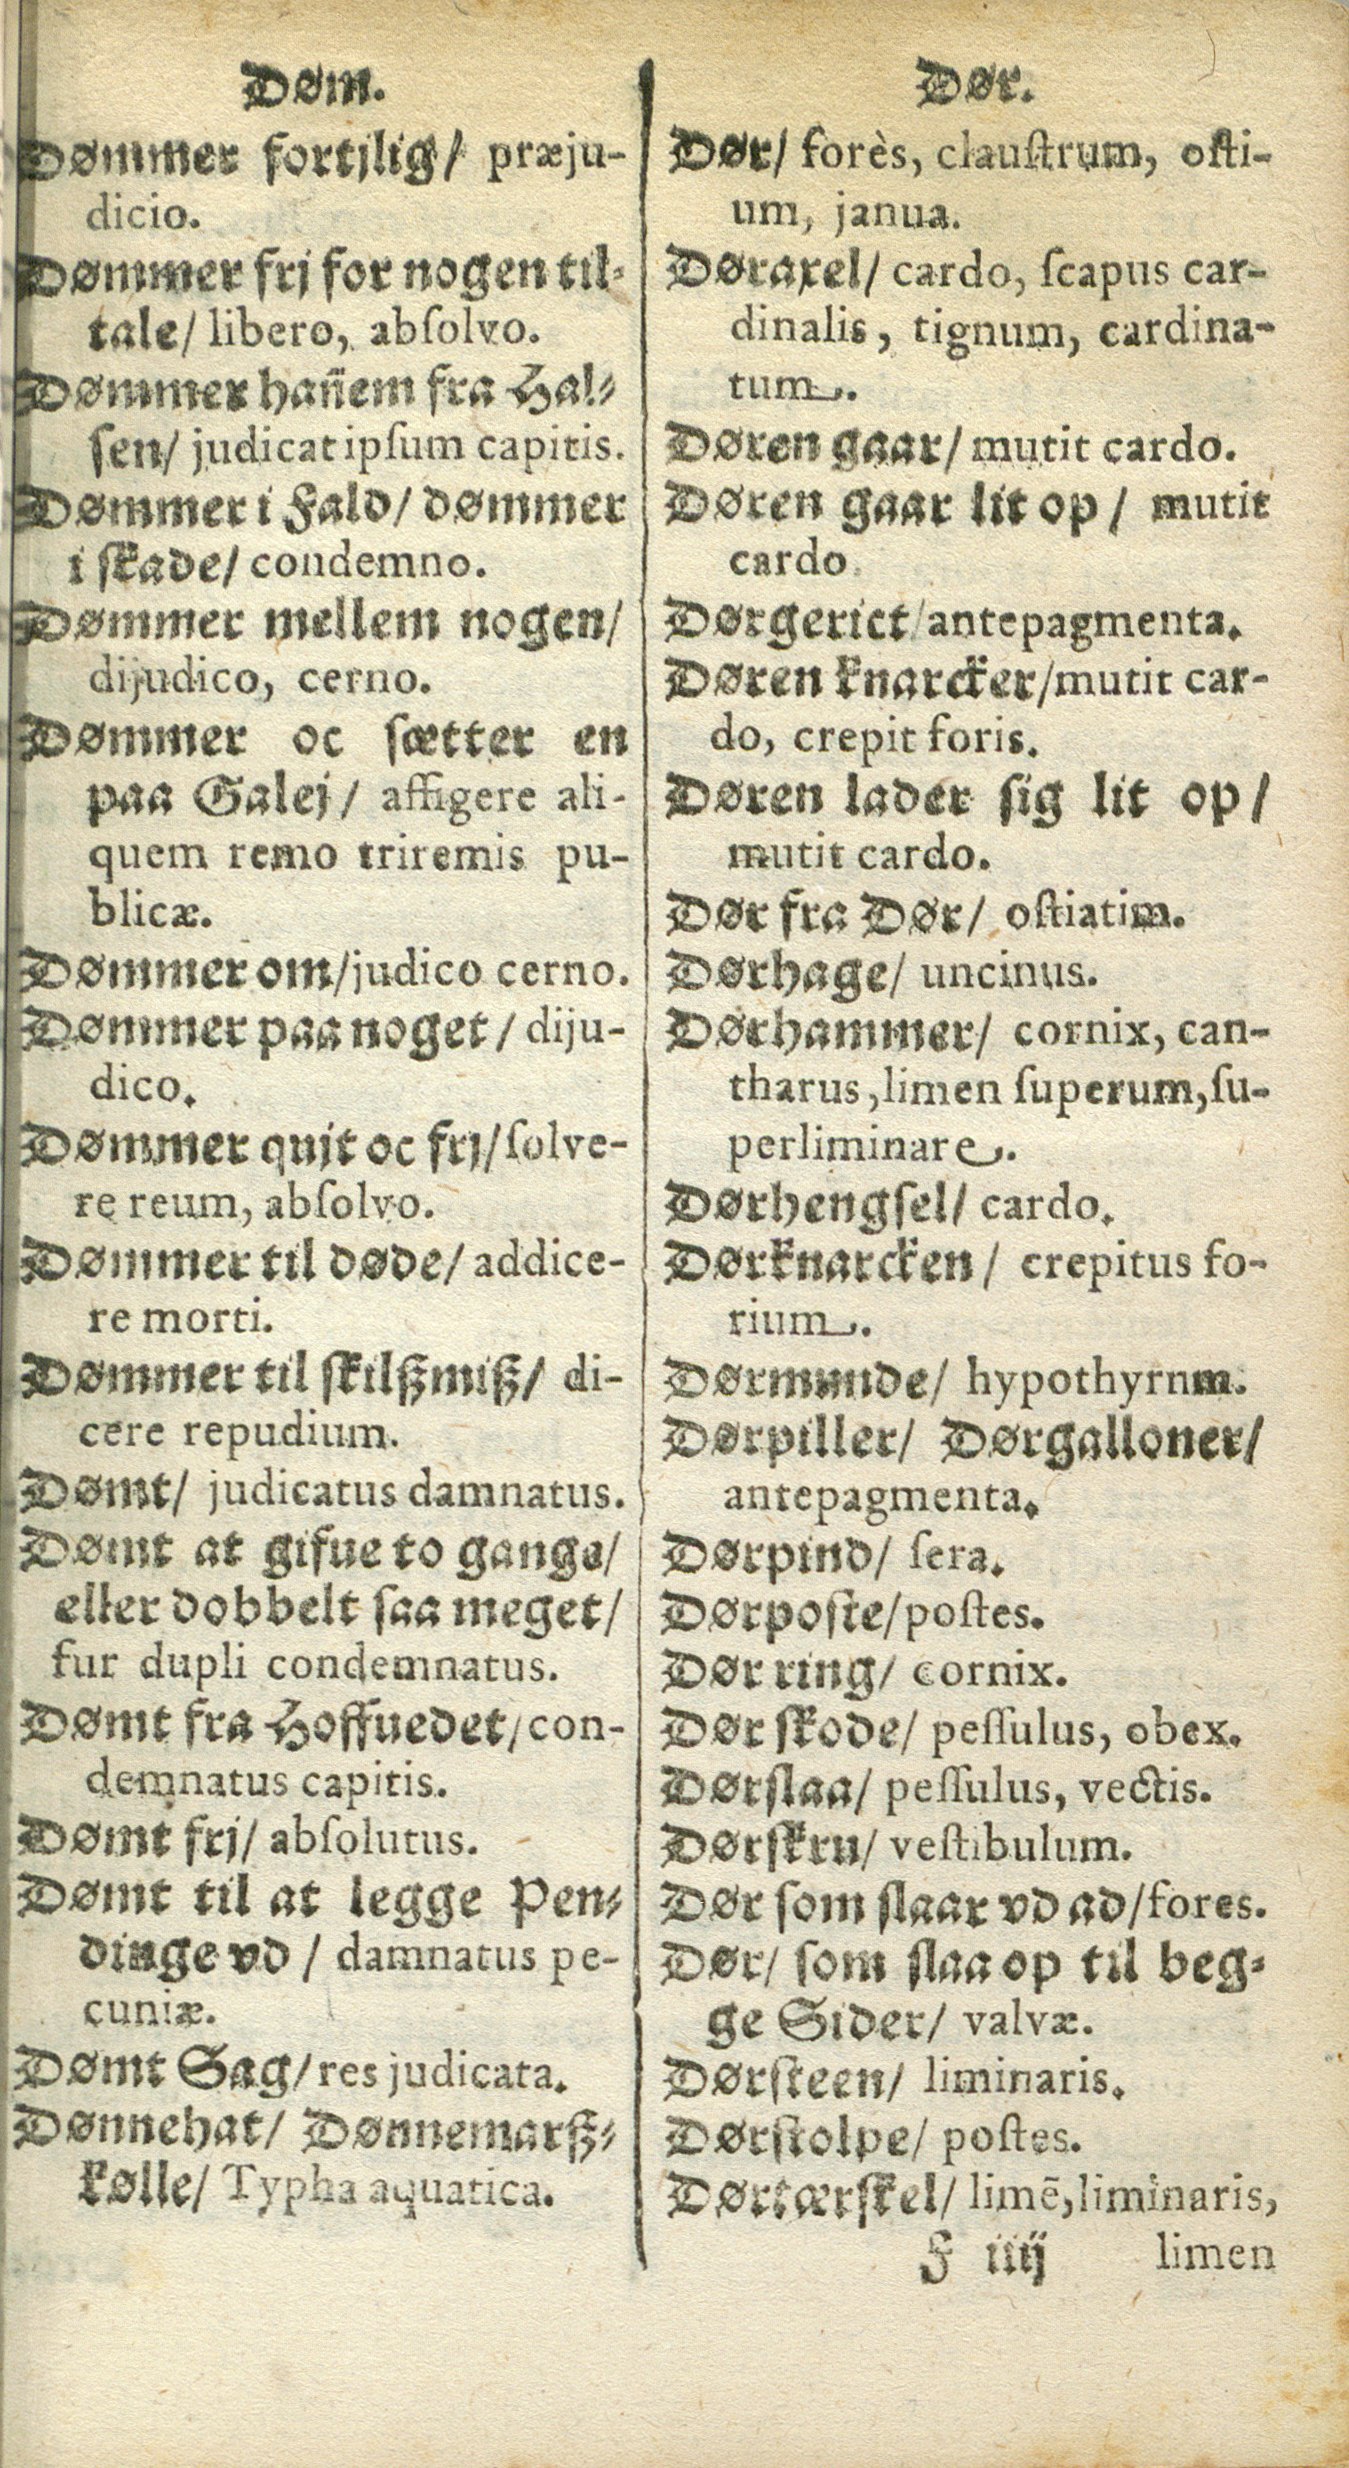 Døm.
Dømmer fortjlig/ præju-
dicio.
Dømmer frj for nogen til-
tale/ libero, abſolvo.
Dømmer hañem fra Hal-
ſen/ judicat ipſum capitis.
Dømmer i Fald/ dømmer
i ſkade/ condemno.
Dømmer mellem nogen/
dijudico, cerno.
Dømmer oc ſætter en
paa Galej/ affigere ali-
quem remo triremis pu-
blicæ.
Dømmer om/judico cerno.
Dømmer paa noget/ diju-
dico.
Dømmer qujt oc frj/ſolve-
re reum, abſolvo.
Dømmer til døde/ addice-
re morti.
Dømmer til ſkilßmiß/ di-
cere repudium.
Dømt/ judicatus damnatus.
Dømt at gifue to gange/
eller dobbelt ſaa meget/
fur dupli condemnatus.
Dømt fra Hoffuedet/con-
demnatus capitis.
Dømt frj/ abſolutus.
Dømt til at legge Pen-
dinge vd/ damnatus pe-
cuniæ.
Dømt Sag/res judicata.
Dønnehat/ Dønnemarß-
kølle/ Typha aquatica.
Dør.
Dør/ forès, clauſtrum, oſti-
um, janua.
Døraxel/ cardo, ſcapus car-
dinalis, tignum, cardina-
tum.
Døren gaar/ mutit cardo.
Døren gaar lit op/ mutit
cardo.
Dørgerict/antepagmenta.
Døren knarcker/mutit car-
do, crepit foris.
Døren lader ſig lit op/
mutit cardo.
Dør fra Dør/ oſtiatim.
Dørhage/ uncinus.
Dørhammer/ cornix, can-
tharus,limen ſuperum,ſu-
perliminare.
Dørhengſel/ cardo.
Dørknarcken/ crepitus fo-
rium.
Dørmunde/ hypothyrnm.
Dørpiller/ Dørgalloner/
antepagmenta.
Dørpind/ ſera.
Dørpoſte/poſtes.
Dør ring/ cornix.
Dør ſkode/ peſſulus, obex.
Dørſlaa/ peſſulus, vectis.
Dørſkru/ veſtibulum.
Dør ſom ſlaar vd ad/fores.
Dør/ ſom ſlaa op til beg-
ge Sider/ valvæ.
Dørſteen/ liminaris.
Dørſtolpe/ poſtes.
Dørtærſkel/ limē,liminaris,
F iiij limen